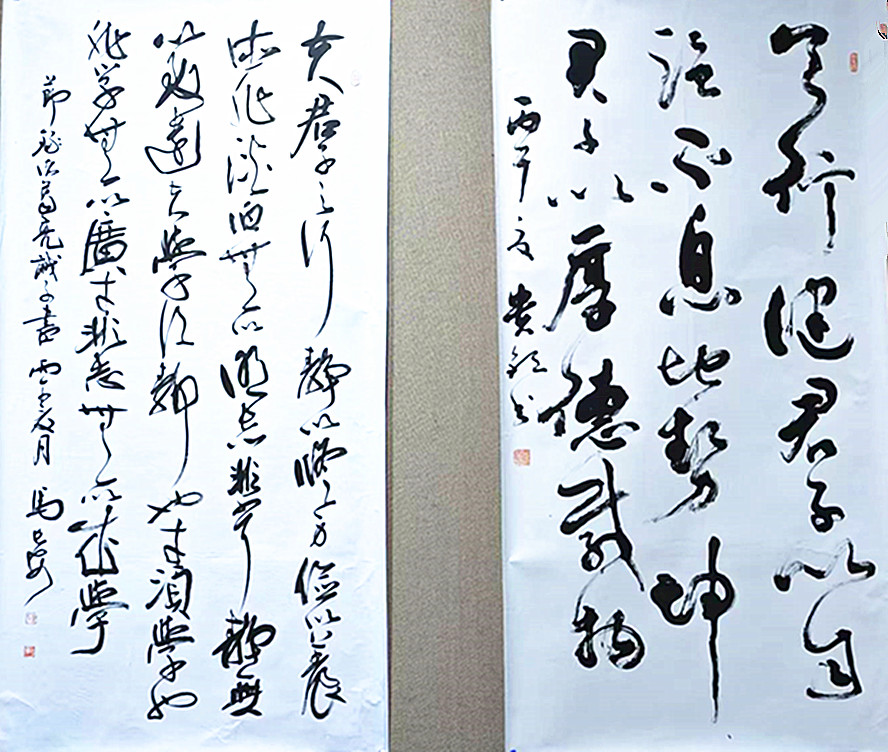 天行健君子以自
强不息地勢坤
君子以厚德載物
丙午夏 貴 书
夫君子之行静以修身儉以養
德非澹泊無以明志非寧静無
以致遠夫學須静也才須學也
非学無以廣才非志無以成學
節録諸葛亮誡子書 丙午夏月 馬